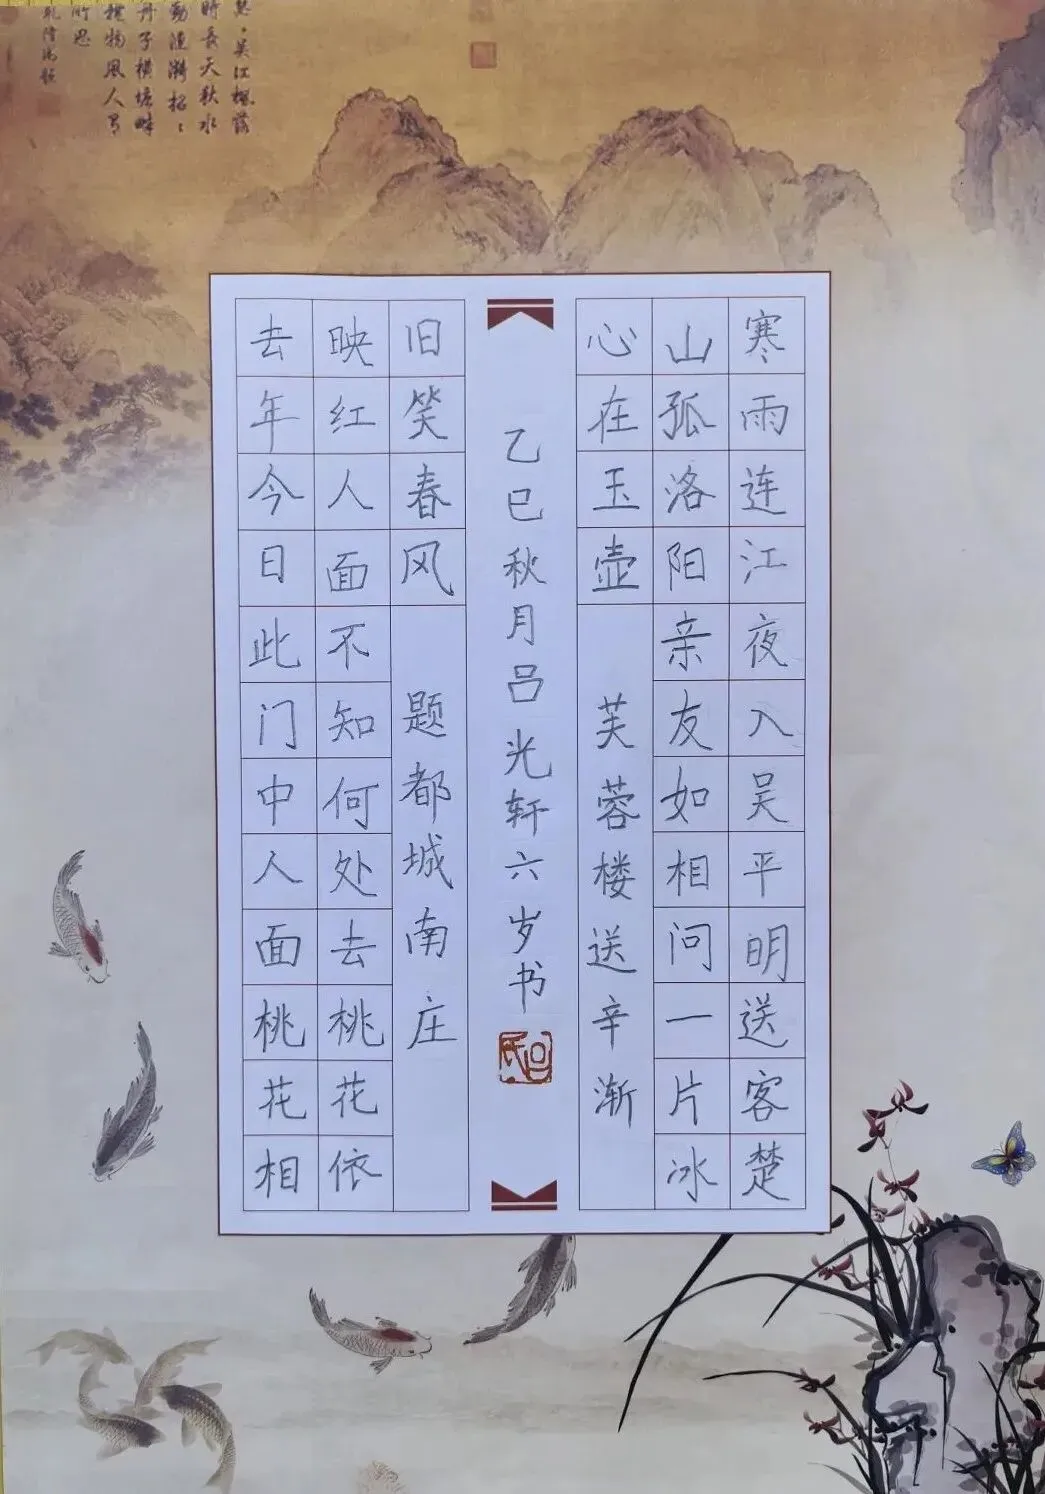 寒雨连江夜入吴平明送客楚
山孤洛阳亲友如相问一片冰
心在玉壶 芙蓉楼送辛渐
乙巳秋月吕光轩六岁书
旧笑春风 题都城南庄
映红人面不知何处去桃花依
去年今日此门中人面桃花相
吴江枫落
时长天秋水